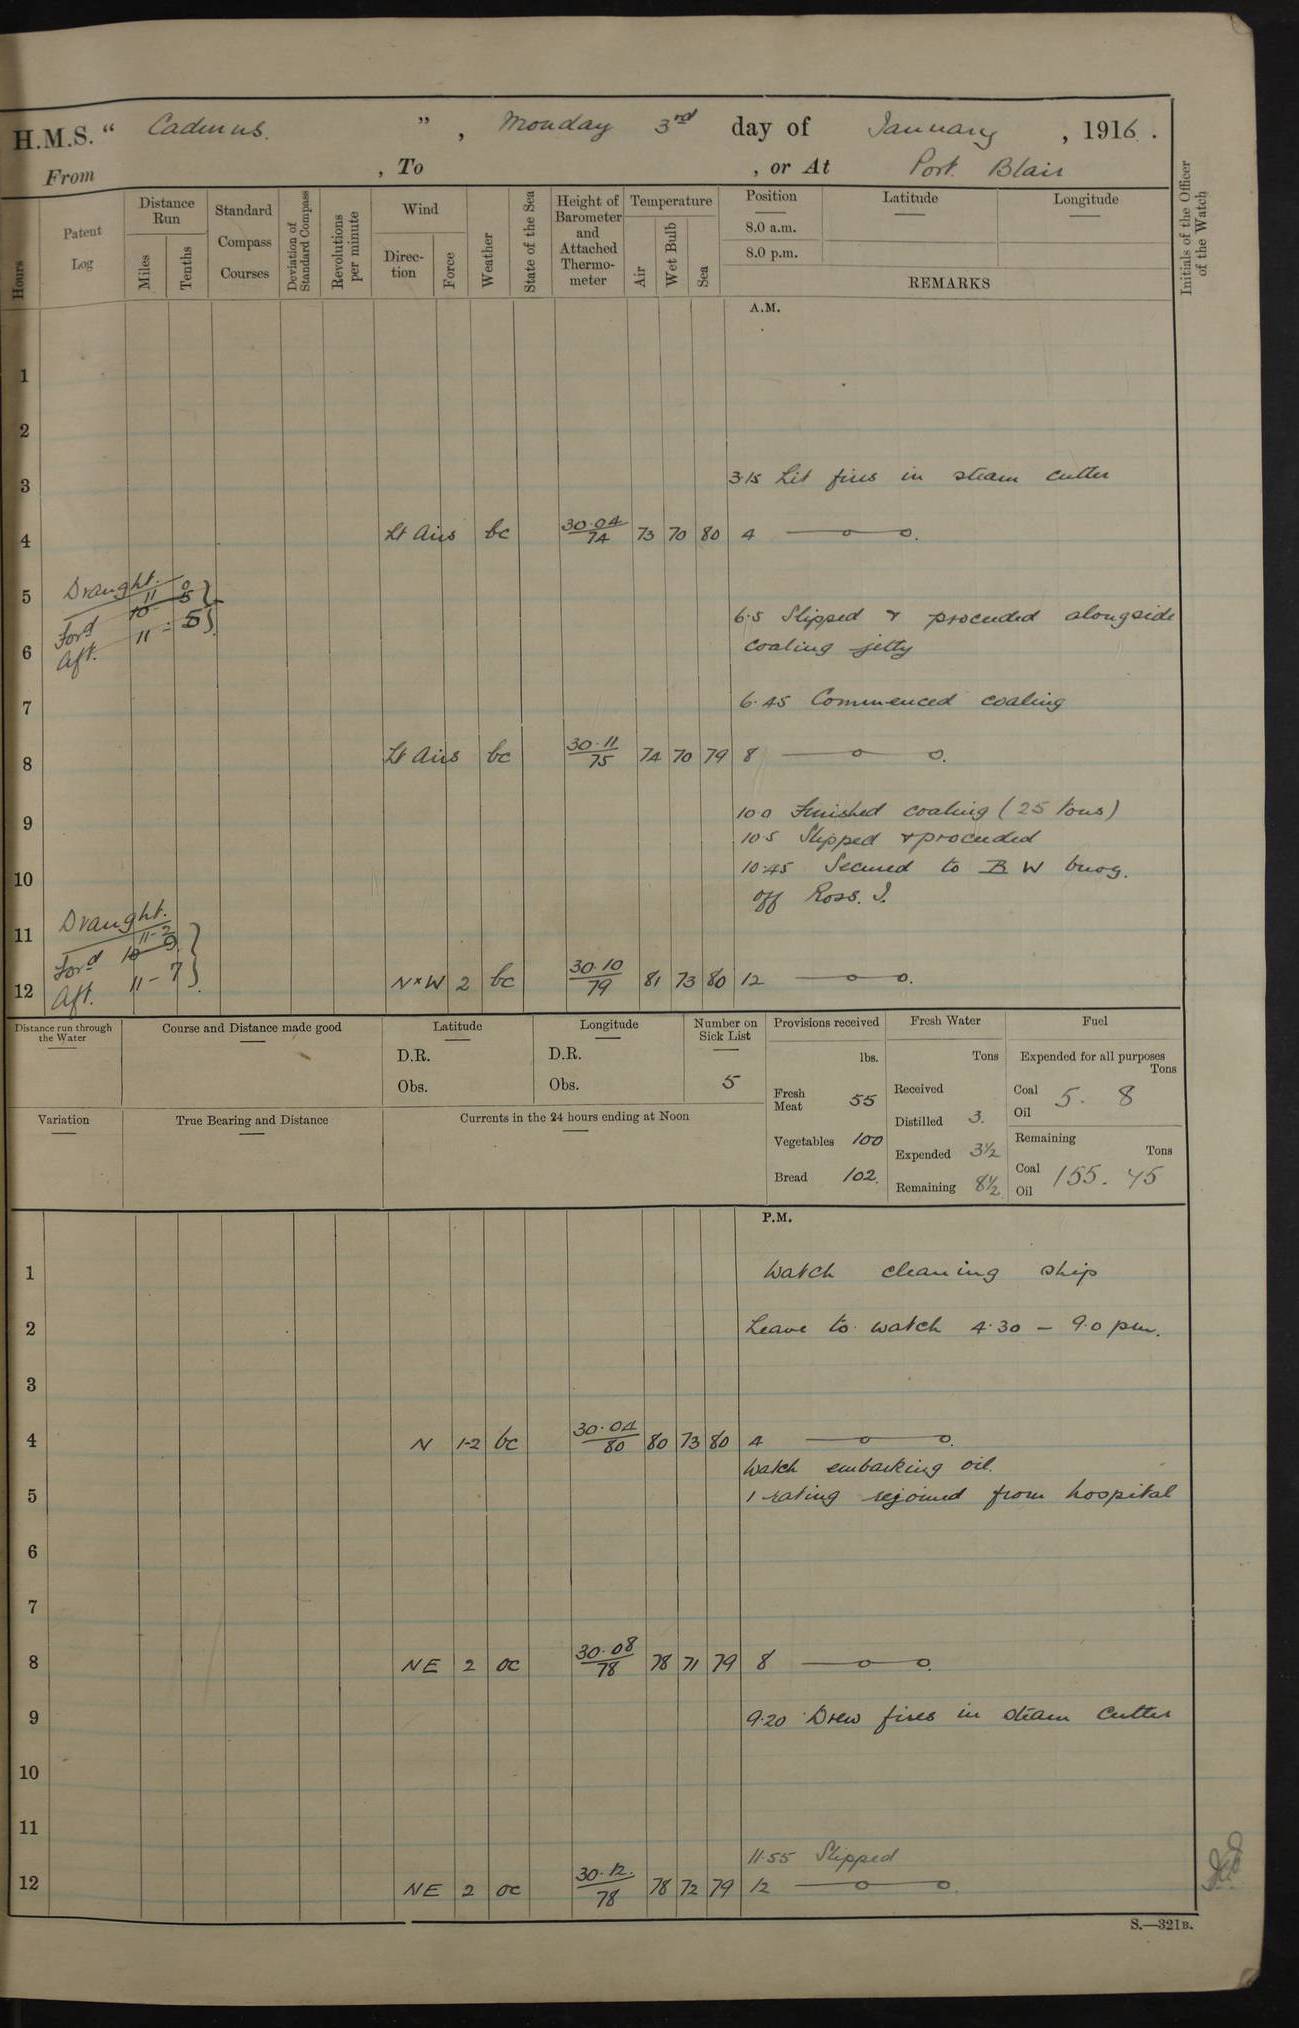 H.M.S. " Cadmus. ", Monday 3rd day of January, 1916.
From , To , or At Port Blair
Hours
Patent Log
Distance Run
Miles
Tenths
Standard Compass Courses
Deviation of Standard Compass
Revolutions per minute
Wind
Direction
Force
Weather
State of the Sea
Height of Barometer and Attached Thermometer
Temperature
Air
Wet Bulb
Sea
Position
8.0 a.m.
8.0 p.m.
Latitude
Longitude
REMARKS
Initials of the Officer of the Watch
A.M.
1
2
3 3.15 Lit fires in steam cutter
4 Lt Airs bc 30.04/74 73 70 80 4 —o—o.
5 Draught.
Ford 11 0
6 Aft. 11 - 5
6.5 Slipped & proceeded alongside
coaling jetty
7 6.45 Commenced coaling
8 Lt Airs bc 30.11/75 74 70 79 8 —o—o.
9 10.0 Finished coaling (25 tons)
10.5 Slipped & proceeded
10 10.45 Secured to B W buoy.
off Ross. I.
11 Draught.
Ford 11 - 2
Aft. 11 - 7
12 N x W 2 bc 30.10/79 81 73 80 12 —o—o.
Distance run through the Water
Course and Distance made good
Latitude
D.R.
Obs.
Longitude
D.R.
Obs.
Number on Sick List
5
Variation
True Bearing and Distance
Currents in the 24 hours ending at Noon
Provisions received
lbs.
Fresh Meat 55
Vegetables 100
Bread 102.
Fresh Water
Tons
Received
Distilled 3.
Expended 3½
Remaining 8½
Fuel
Expended for all purposes
Tons
Coal 5. 8
Oil
Remaining
Tons
Coal 155. 45
Oil
P.M.
1 Watch cleaning ship
2 Leave to watch 4.30 - 9.0 pm.
3
4 N 1-2 bc 30.04/80 80 73 80 4 —o—o.
Watch embarking oil.
5 1 rating rejoined from hospital
6
7
8 NE 2 oc 30.08/78 78 71 79 8 —o—o.
9 9.20 Drew fires in steam cutter
10
11
11.55 Slipped
12 NE 2 oc 30.12./78 78 72 79 12 —o—o.
S.—321B.